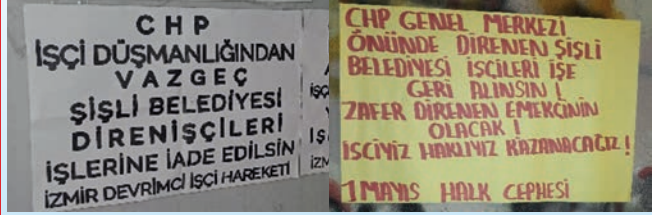 CHP
İŞÇİ DÜŞMANLIĞINDAN
VAZGEÇ
ŞİŞLİ BELEDİYESİ
DİRENİŞÇİLERİ
İŞLERİNE İADE EDİLSİN
İZMİR DEVRİMCİ İŞÇİ HAREKETİ
CHP GENEL MERKEZİ
ÖNÜNDE DİRENEN ŞİŞLİ
BELEDİYESİ İŞCİLERİ İŞE
GERİ ALINSIN !
ZAFER DİRENEN EMEKÇİNİN
OLACAK !
İSCİYİZ HAKLIYIZ KAZANACAĞIZ !
1 MAYIS HALK CEPHESİ